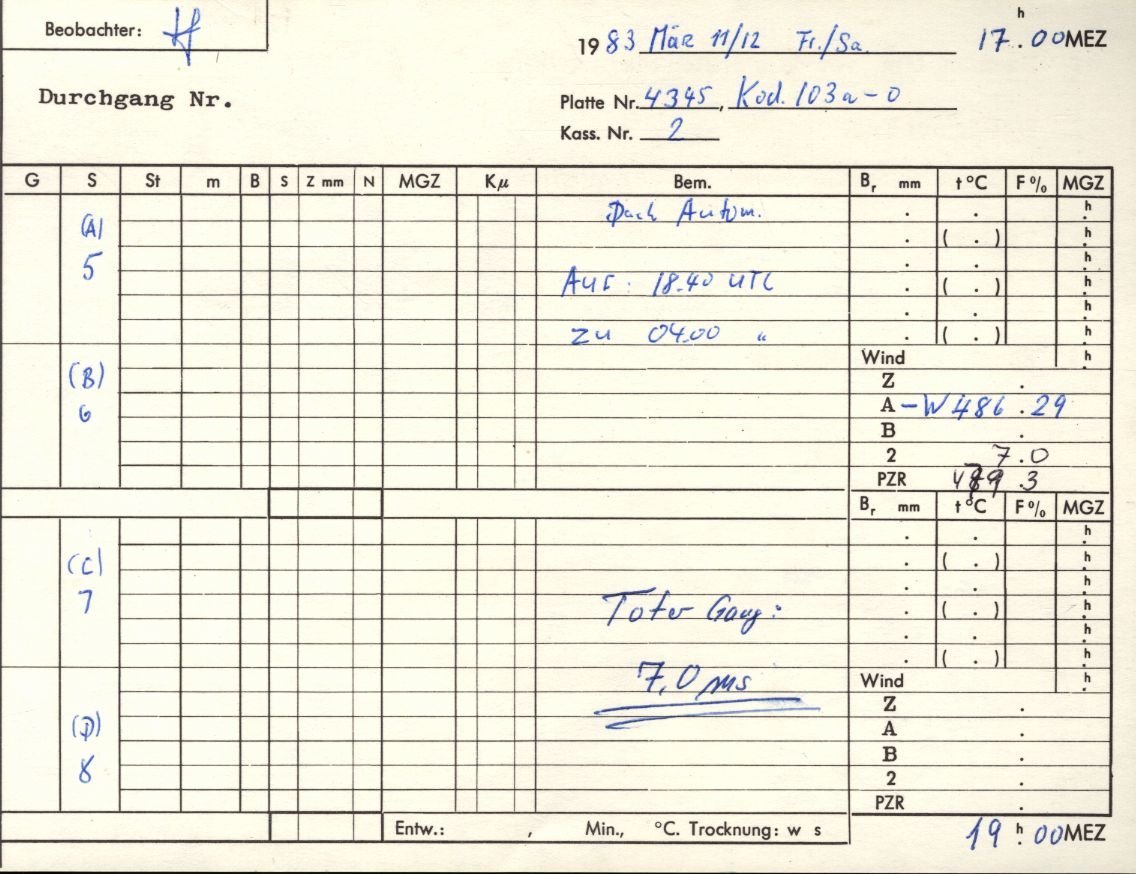 Beobachter:
1983 Mär 11/12 Fr./Sa. 17.h00 MEZ
Durchgang Nr.
Platte Nr. 4345, Kod. 103a-O
Kass. Nr. 2
G S St m B S Z mm N MGZ Kμ Bem. Br mm t°C F% MGZ
(A) Dach Autom. . . h.
. ( . ) h.
5 . . h.
Auf: 18.40 UTC . ( . ) h.
. . h.
zu 04.00 " . ( . ) h.
Wind h.
(B) Z .
6 A -W 486.29
B .
2 7.0
PZR 489.3
Br mm t°C F% MGZ
. . h.
(C) . ( . ) h.
. . h.
7 Toter Gang: . ( . ) h.
. . h.
. ( . ) h.
7,0 ms Wind h.
Z .
(D) A .
B .
8 2 .
PZR .
Entw.: , Min., °C. Trocknung: w s
19h.00 MEZ